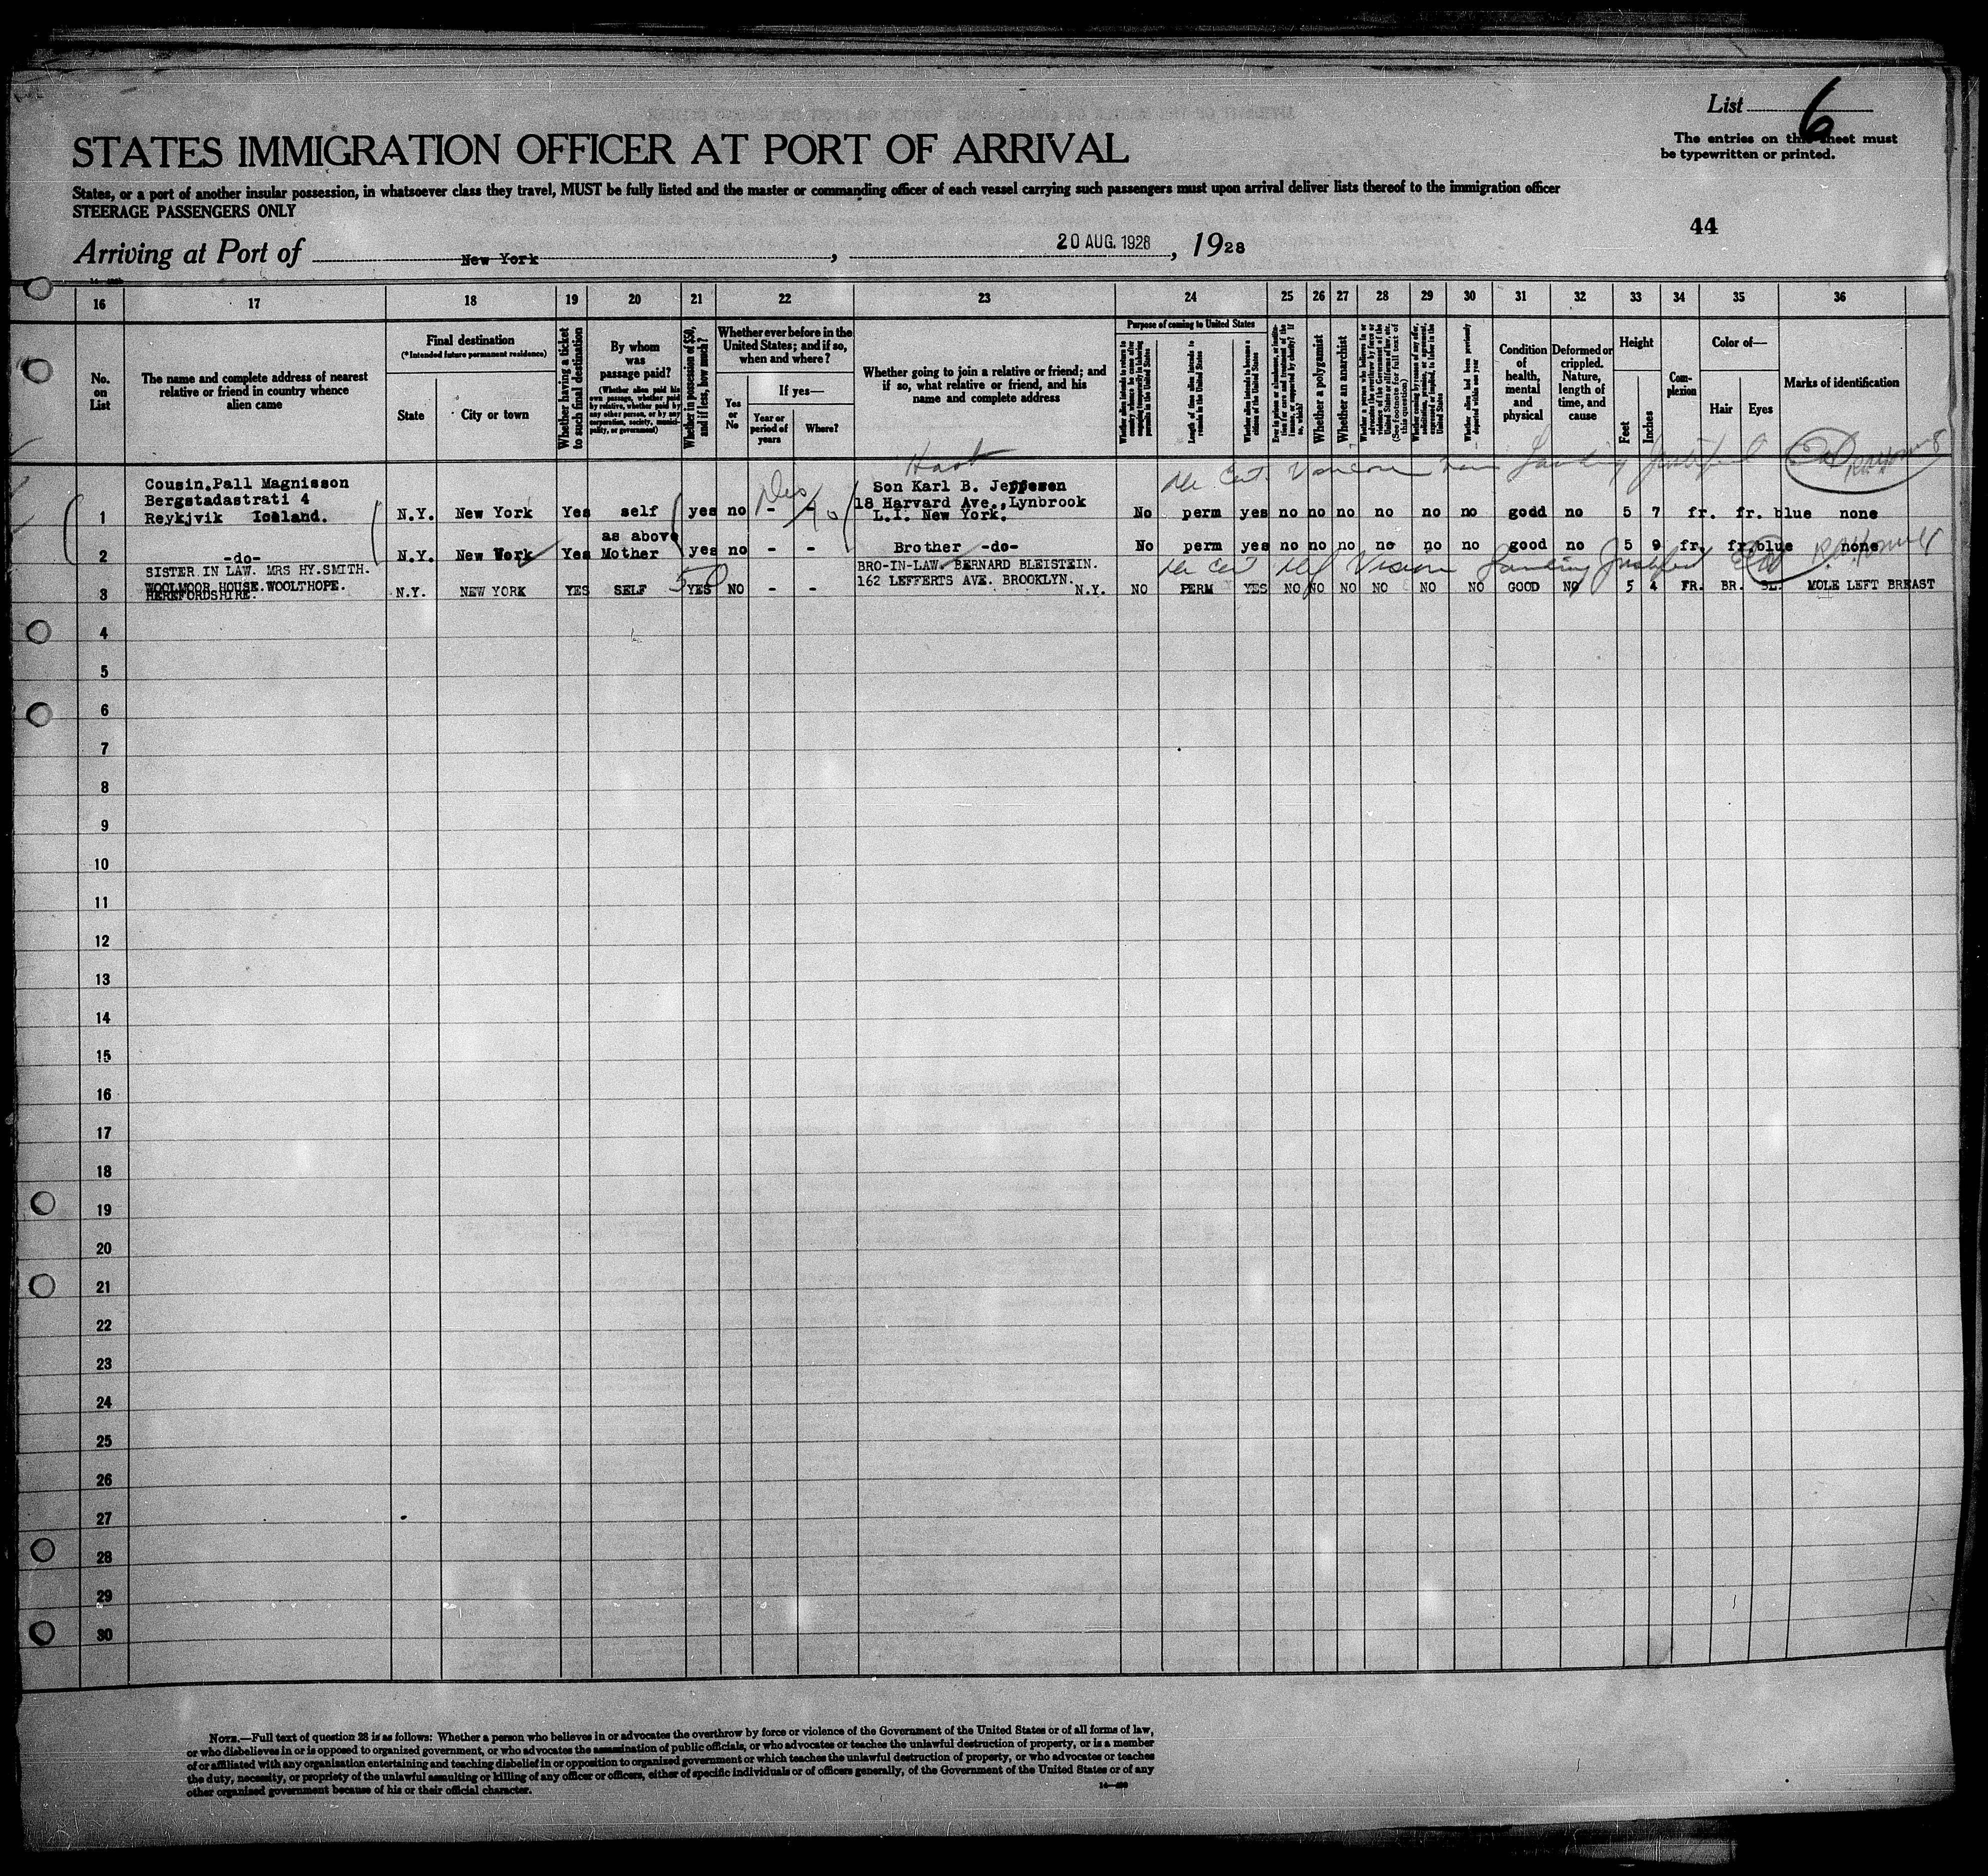 List 6
The entries on this sheet must
be typewritten or printed.
STATES IMMIGRATION OFFICER AT PORT OF ARRIVAL
States, or a port of another insular possession, in whatsoever class they travel, MUST be fully listed and the master or commanding officer of each vessel carrying such passengers must upon arrival deliver lists thereof to the immigration officer
STEERAGE PASSENGERS ONLY
44
Arriving at Port of New York, 20 AUG. 1928, 1928
16 17 18 19 20 21 22 23 24 25 26 27 28 29 30 31 32 33 34 35 36
No.
on
List
The name and complete address of nearest
relative or friend in country whence
alien came
Final destination
(*Intended future permanent residence)
State
City or town
Whether having a ticket
to such final destination
By whom
was
passage paid?
(Whether alien paid his
own passage, whether paid
by relative, whether paid by
any other person, or by any
corporation, society, munici-
pality, or government)
Whether in possession of $50,
and if less, how much?
Whether ever before in the
United States; and if so,
when and where?
Yes
or
No
If yes—
Year or
period of
years
Where?
Whether going to join a relative or friend; and
if so, what relative or friend, and his
name and complete address
Purpose of coming to United States
Length of time alien intends to
remain in the United States
Whether alien intends to become a
citizen of the United States
Whether a polygamist
Whether an anarchist
(See footnote for full text of
this question)
Whether alien had been previously
deported within one year
Condition
of
health,
mental
and
physical
Deformed or
crippled.
Nature,
length of
time, and
cause
Height
Feet
Inches
Com-
plexion
Color of—
Hair
Eyes
Marks of identification
Landing Justified
Cousin.Pall Magnisson
Bergstadastrati 4
Reykjvik Iceland.
Son Karl B. Jeppesen
18 Harvard Ave.,Lynbrook
L.I. New York.
1 N.Y. New York Yes self yes no - - No perm yes no no no no no no godd no 5 7 fr. fr. blue none
as above
2 -do- N.Y. New York Yes Mother yes no - - Brother -do- No perm yes no no no no no no good no 5 9 fr. fr. blue none
Landing Justified
SISTER IN LAW. MRS HY.SMITH.
WOOLMOOR HOUSE.WOOLTHOPE.
HEREFORDSHIRE.
BRO-IN-LAW. BERNARD BLEISTEIN.
162 LEFFERTS AVE. BROOKLYN.
N.Y.
3 N.Y. NEW YORK YES SELF 50 YES NO - - NO PERM YES NO NO NO NO NO NO GOOD NO 5 4 FR. BR. BL. MOLE LEFT BREAST
4
5
6
7
8
9
10
11
12
13
14
15
16
17
18
19
20
21
22
23
24
25
26
27
28
29
30
NOTE.—Full text of question 28 is as follows: Whether a person who believes in or advocates the overthrow by force or violence of the Government of the United States or of all forms of law,
or who disbelieves in or is opposed to organized government, or who advocates the assassination of public officials, or who advocates or teaches the unlawful destruction of property, or is a member
of or affiliated with any organization entertaining and teaching disbelief in or opposition to organized government or which teaches the unlawful destruction of property, or who advocates or teaches
the duty, necessity, or propriety of the unlawful assaulting or killing of any officer or officers, either of specific individuals or of officers generally, of the Government of the United States or of any
other organized government because of his or their official character.